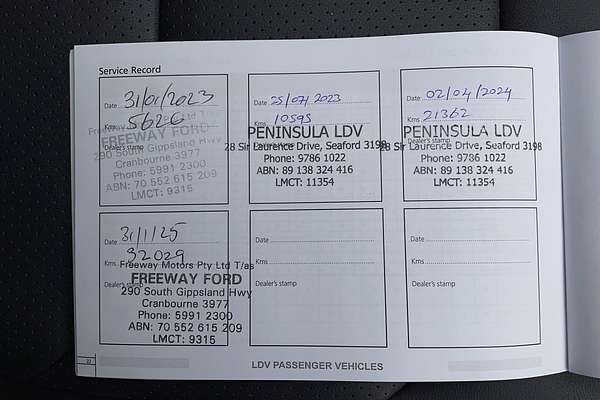 Service Record
Date 31/01/2023
Kms 5626
Freeway Motors Pty Ltd T/as
FREEWAY FORD
Dealer's stamp
290 South Gippsland Hwy
Cranbourne 3977
Phone: 5991 2300
ABN: 70 552 615 209
LMCT: 9315
Date 25/07/2023
Kms 10595
PENINSULA LDV
28 Sir Laurence Drive, Seaford 3198
Phone: 9786 1022
ABN: 89 138 324 416
LMCT: 11354
Date 02/04/2024
Kms 21362
PENINSULA LDV
28 Sir Laurence Drive, Seaford 3198
Phone: 9786 1022
ABN: 89 138 324 416
LMCT: 11354
Date 31/1/25
Kms 32029
Freeway Motors Pty Ltd T/as
Dealer's stamp FREEWAY FORD
290 South Gippsland Hwy
Cranbourne 3977
Phone: 5991 2300
ABN: 70 552 615 209
LMCT: 9315
Date
Kms
Dealer's stamp
Date
Kms
Dealer's stamp
22
LDV PASSENGER VEHICLES